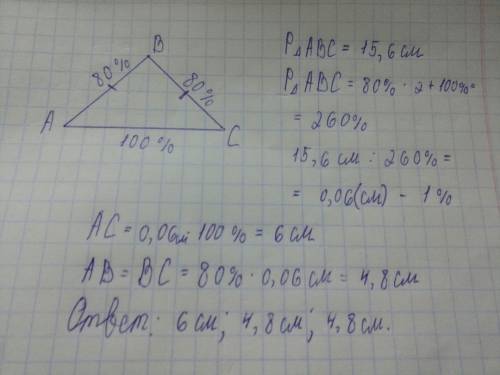 B
80%
80%
A
C
100%
P△ABC = 15,6 см
P△ABC = 80% · 2 + 100% =
= 260%
15,6 см : 260% =
= 0,06 (см) - 1%
AC = 0,06см · 100% = 6 см
AB = BC = 80% · 0,06 см = 4,8 см
Ответ: 6 см; 4,8 см; 4,8 см.